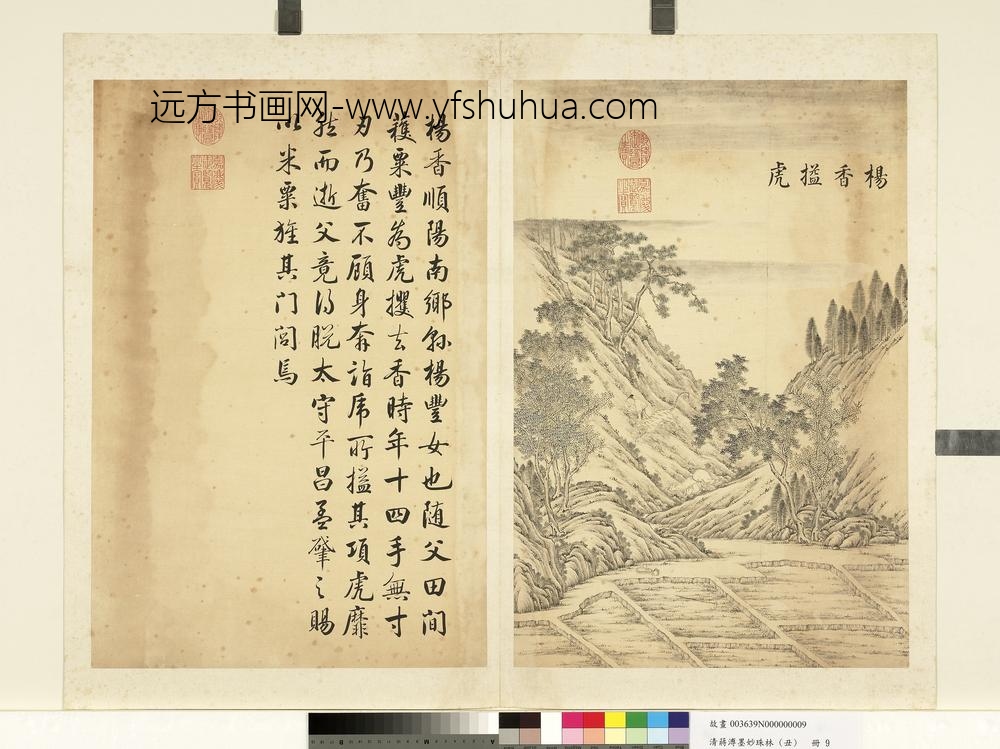 远方书画网-www.yfshuhua.com
楊香搤虎
楊香順陽南鄉縣楊豐女也随父田間
穫粟豐為虎攫去香時年十四手無寸
刃乃奮不顧身奔詣虎所搤其項虎靡
然而逝父竟得脱太守平昌孟肇之賜
以米粟旌其门閭焉
故畫 003639N000000009
清蔣溥墨妙珠林（丑） 冊 9